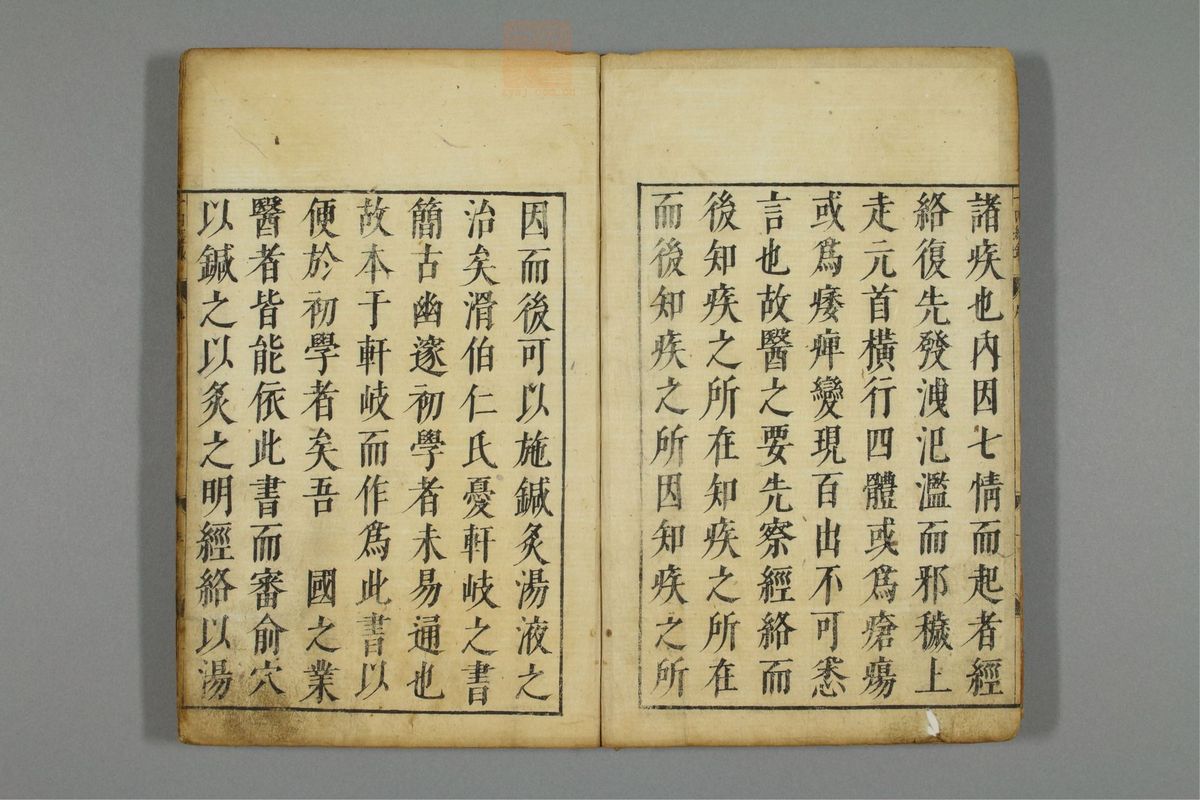 諸疾也内因七情而起者經
絡復先發洩汜濫而邪穢上
走元首橫行四體或爲瘡瘍
或爲痿痺變現百出不可悉
言也故醫之要先察經絡而
後知疾之所在知疾之所在
而後知疾之所因知疾之所
因而後可以施鍼灸湯液之
治矣滑伯仁氏憂軒岐之書
簡古幽邃初學者未易通也
故本于軒岐而作爲此書以
便於初學者矣吾　國之業
醫者皆能依此書而審俞穴
以鍼之以灸之明經絡以湯